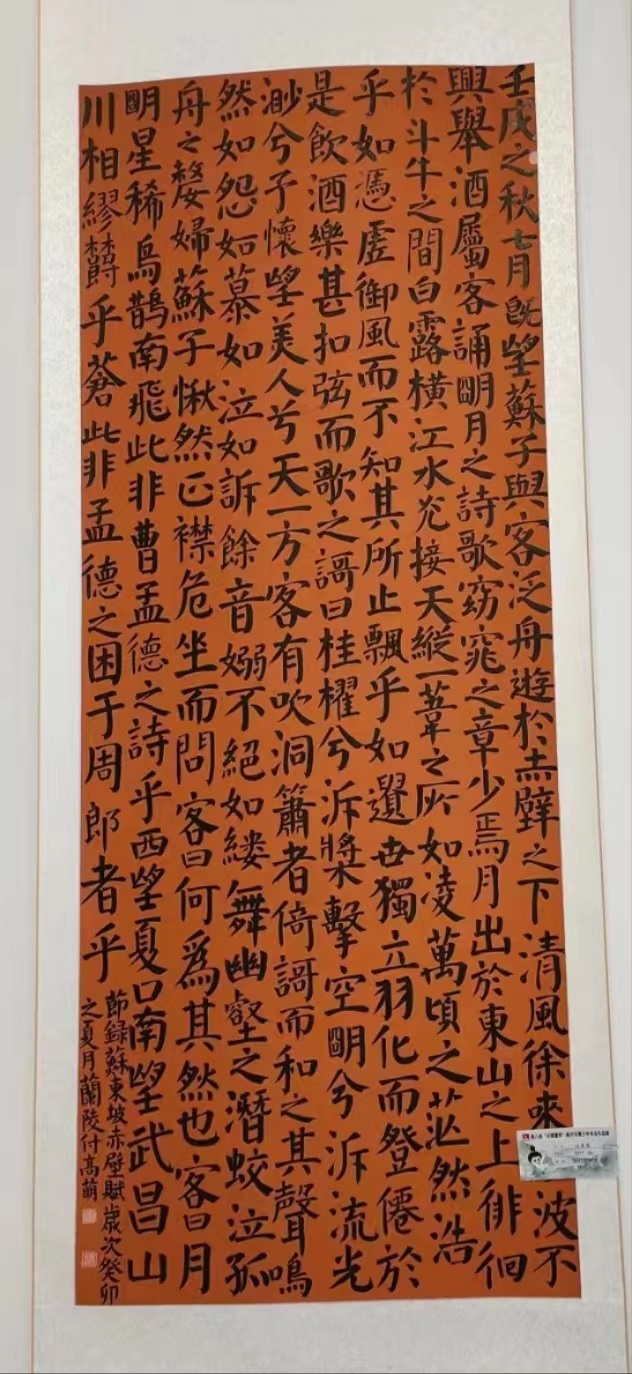 壬戌之秋七月既望蘇子與客泛舟遊於赤壁之下清風徐來波不
興舉酒屬客誦朙月之詩歌窈窕之章少焉月出於東山之上徘徊
於斗牛之間白露橫江水光接天縱一葦之所如凌萬頃之茫然浩
乎如憑虛御風而不知其所止飄乎如遺世獨立羽化而登僊於
是飲酒樂甚扣弦而歌之謌曰桂櫂兮泝槳擊空朙兮泝流光
渺兮予懷望美人兮天一方客有吹洞簫者倚謌而和之其聲鳴
然如怨如慕如泣如訴餘音嫋不絕如縷舞幽壑之潛蛟泣孤
舟之嫠婦蘇子愀然正襟危坐而問客曰何為其然也客曰月
朙星稀烏鵲南飛此非曹孟德之詩乎西望夏口南望武昌山
川相繆鬱乎蒼此非孟德之困于周郎者乎
節錄蘇東坡赤壁賦歲次癸卯
之夏月蘭陵付高萌